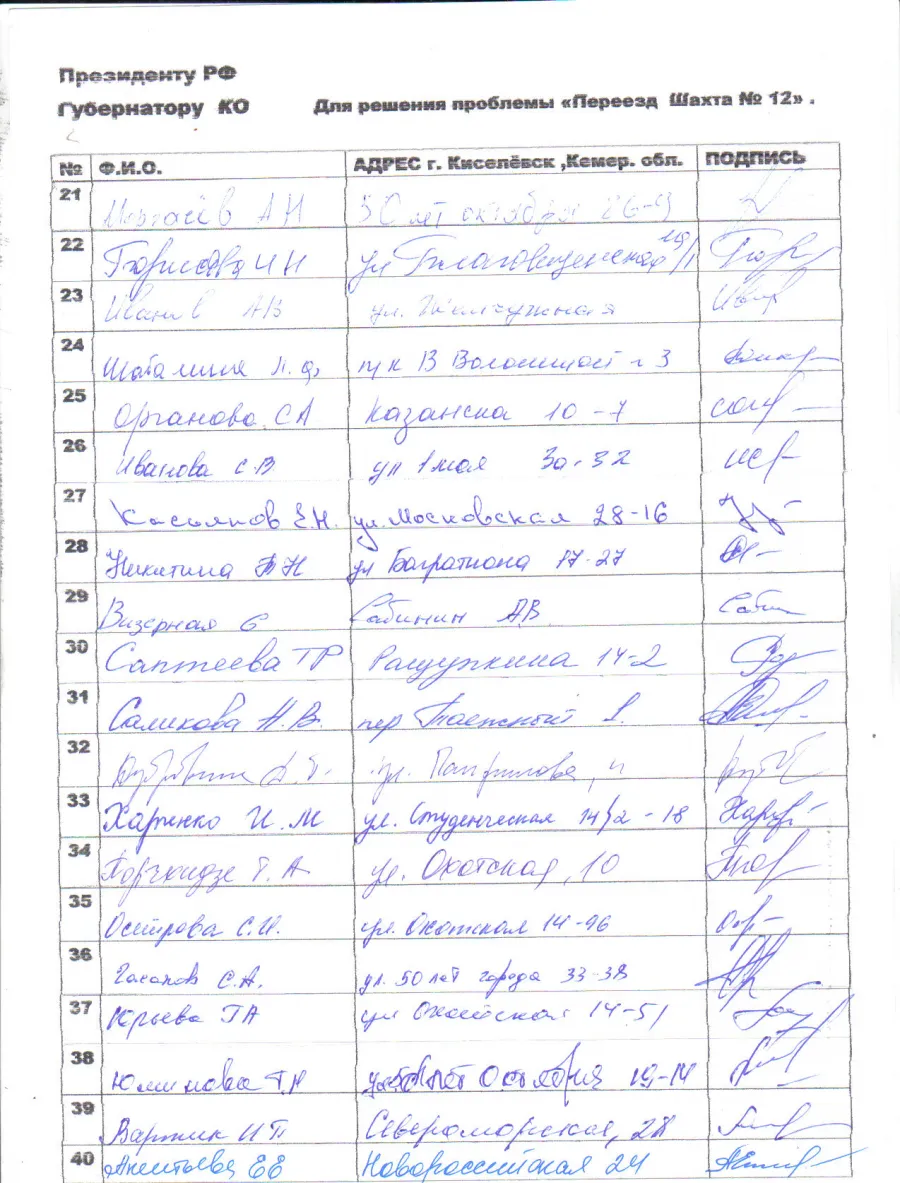 Президенту РФ
Губернатору КО Для решения проблемы «Переезд Шахта № 12» .
№ Ф.И.О. АДРЕС г. Киселёвск ,Кемер. обл. ПОДПИСЬ
21 А Н 50 лет октября 26-9
22 Борисова И Н ул Благовещенская
23 Иванов АВ ул. Жемчужная
24 Шаталина 3
25 Органова СА Казанска 10-7
26 Иванова С.В ул 1 мая 30-32
27 Касьянов Е.Н. ул. Московская 28-16
28 Никитина Т Н ул Багратиона 17-27
29 Визерная 6 Сабинин А.В.
30 Саптеева ТР Ращупкина 14-2
31 Саликова Н.В. пер Таежный 1.
32 ул. Панфилова,
33 Харченко И.М ул. Студенческая 14/2-18
34 Т.А ул. Охотская, 10
35 Острова С.И. ул. Охотская 14-96
36 Гасанов С.А. ул. 50 лет города 33-38
37 Юрьева ТА ул Охотская 14-51
38 Т.Н лет Октября 19-14
39 Вартик ИП Североморская, 28
40 ЕЕ Новороссийская 24